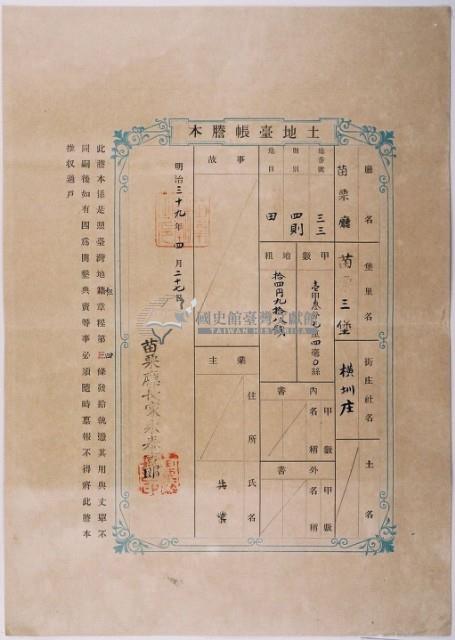 土地臺帳謄本
廳名
苗栗廳
堡里名
苗 三堡
街庄社名
橫圳庄
土名
地番號
三三
則別
四則
地目
田
甲數
地租
拾四円九拾八錢
內書
甲數
名稱
外書
甲數
名稱
事故
業主
住所
氏名
明治三十九年四月二十七日
苗栗廳長家永泰吉郎
此謄本係是照臺灣地籍 章程第 條發給就遵其用與丈單不
同嗣後如有因為開墾典賣等事必須隨時稟報不得將此謄本
推収過戶
國史館臺灣文獻館
TAIWAN HISTORICA